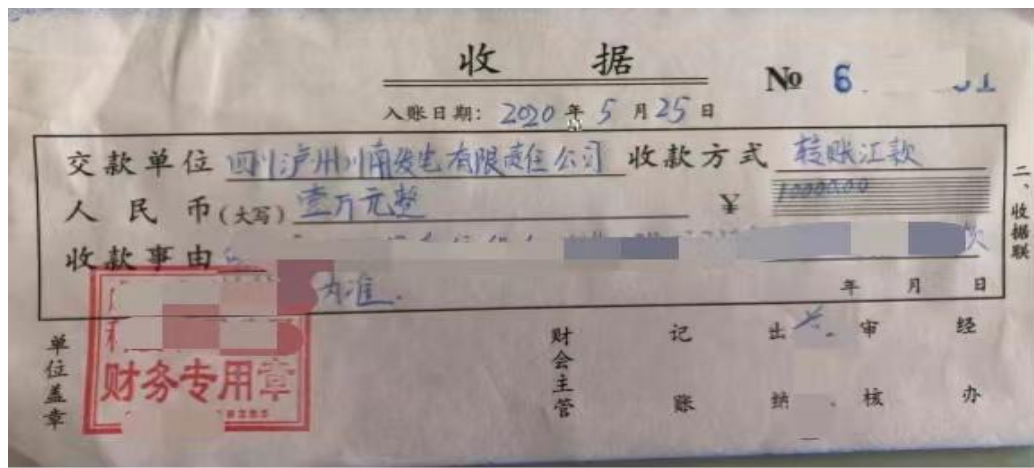 收据
No 6
入账日期: 2020年5月25日
交款单位 四川泸州川南发电有限责任公司 收款方式 转账汇款
人民币(大写) 壹万元整 ¥ 1000000
收款事由
为准.
年 月 日
二、收据联
单位盖章
财务专用章
财会主管
记账
出纳
审核
经办